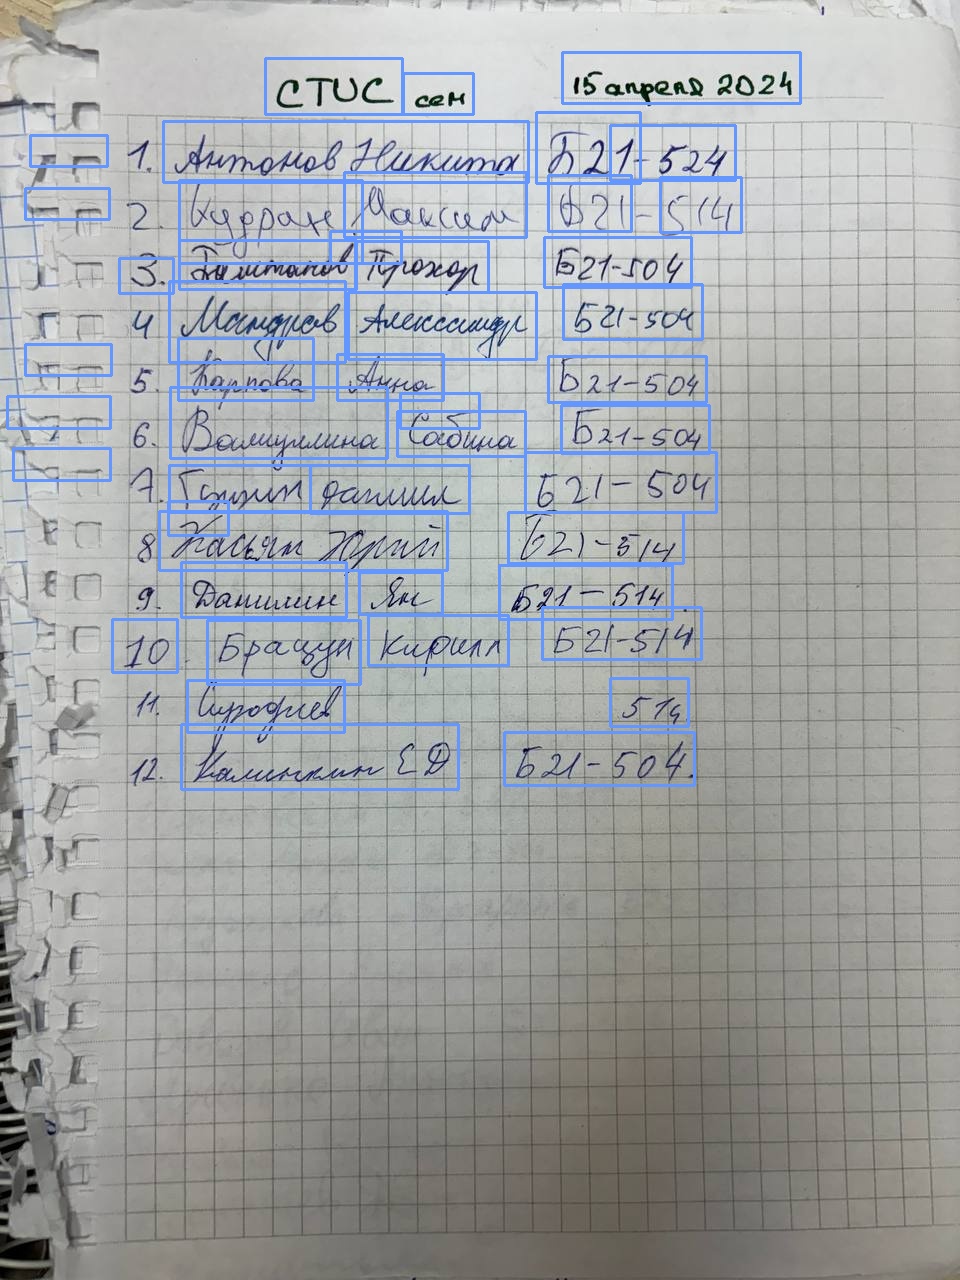 СТИС сем 15 апреля 2024
1. Антонов Никита Б21-524
2. Кудран Максим Б21-514
3. Прохор Б21-504
4 Мандров Александр Б21-504
5. Карпова Анна Б21-504
6. Валиуллина Сабина Б21-504
7. Даниил Б21-504
8 Касьян Юрий Б21-514
9. Данилин Ян Б21-514.
10. Брацун Кирилл Б21-514
11. 514
12. Калинкин ЕД Б21-504.